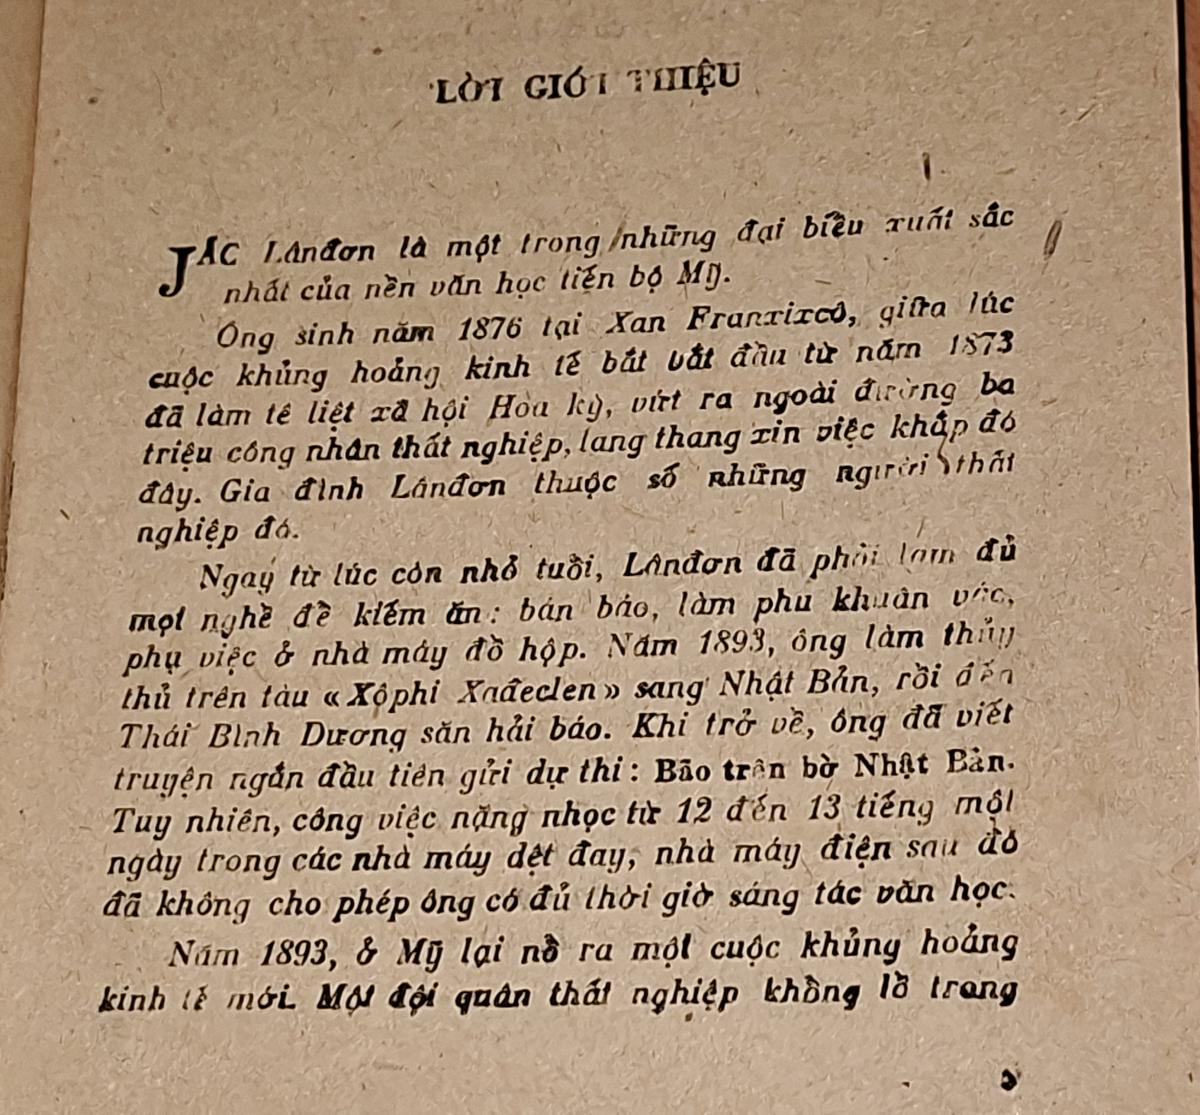 LỜI GIỚI THIỆU
JẮC Lânđơn là một trong những đại biểu xuất sắc
nhất của nền văn học tiến bộ Mỹ.
Ông sinh năm 1876 tại Xan Franxixcô, giữa lúc
cuộc khủng hoảng kinh tế bắt đầu từ năm 1873
đã làm tê liệt xã hội Hoa kỳ, vứt ra ngoài đường ba
triệu công nhân thất nghiệp, lang thang xin việc khắp đó
đây. Gia đình Lânđơn thuộc số những người thất
nghiệp đó.
Ngay từ lúc còn nhỏ tuổi, Lânđơn đã phải làm đủ
mọi nghề để kiếm ăn: bán báo, làm phu khuân vác,
phụ việc ở nhà máy đồ hộp. Năm 1893, ông làm thủy
thủ trên tàu «Xôphi Xađeclen» sang Nhật Bản, rồi đến
Thái Bình Dương săn hải báo. Khi trở về, ông đã viết
truyện ngắn đầu tiên gửi dự thi: Bão trên bờ Nhật Bản.
Tuy nhiên, công việc nặng nhọc từ 12 đến 13 tiếng một
ngày trong các nhà máy dệt đay, nhà máy điện sau đó
đã không cho phép ông có đủ thời giờ sáng tác văn học.
Năm 1893, ở Mỹ lại nổ ra một cuộc khủng hoảng
kinh tế mới. Một đội quân thất nghiệp khổng lồ trong